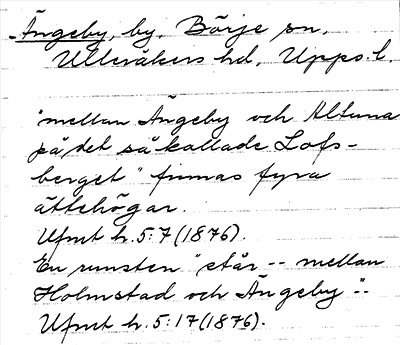 Ängeby, by, Börje sn,
Ulleråkers hd, Upps. l.
"mellan Ängeby och Altuna
på det så kallade Lofs-
berget" finnas fyra
ättehögar.
Ufmt h. 5:7 (1876).
En runsten "står -- mellan
Holmstad och Ängeby"--
Ufmt h. 5:17 (1876).